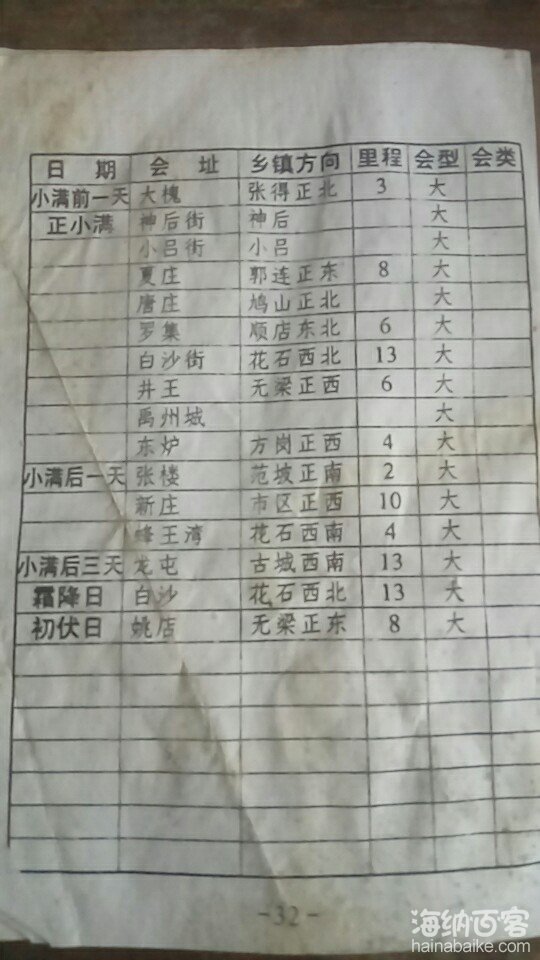 日 期 会 址 乡镇方向 里程 会型 会类
小满前一天 大槐 张得正北 3 大
正小满 神后街 神后 大
小吕街 小吕 大
夏庄 郭连正东 8 大
唐庄 鸠山正北 大
罗集 顺店东北 6 大
白沙街 花石西北 13 大
井王 无梁正西 6 大
禹州城 大
东炉 方岗正西 4 大
小满后一天 张楼 范坡正南 2 大
新庄 市区正西 10 大
蜂王湾 花石西南 4 大
小满后三天 龙屯 古城西南 13 大
霜降日 白沙 花石西北 13 大
初伏日 姚店 无梁正东 8 大
-32-
海纳百客
hainabaike.com